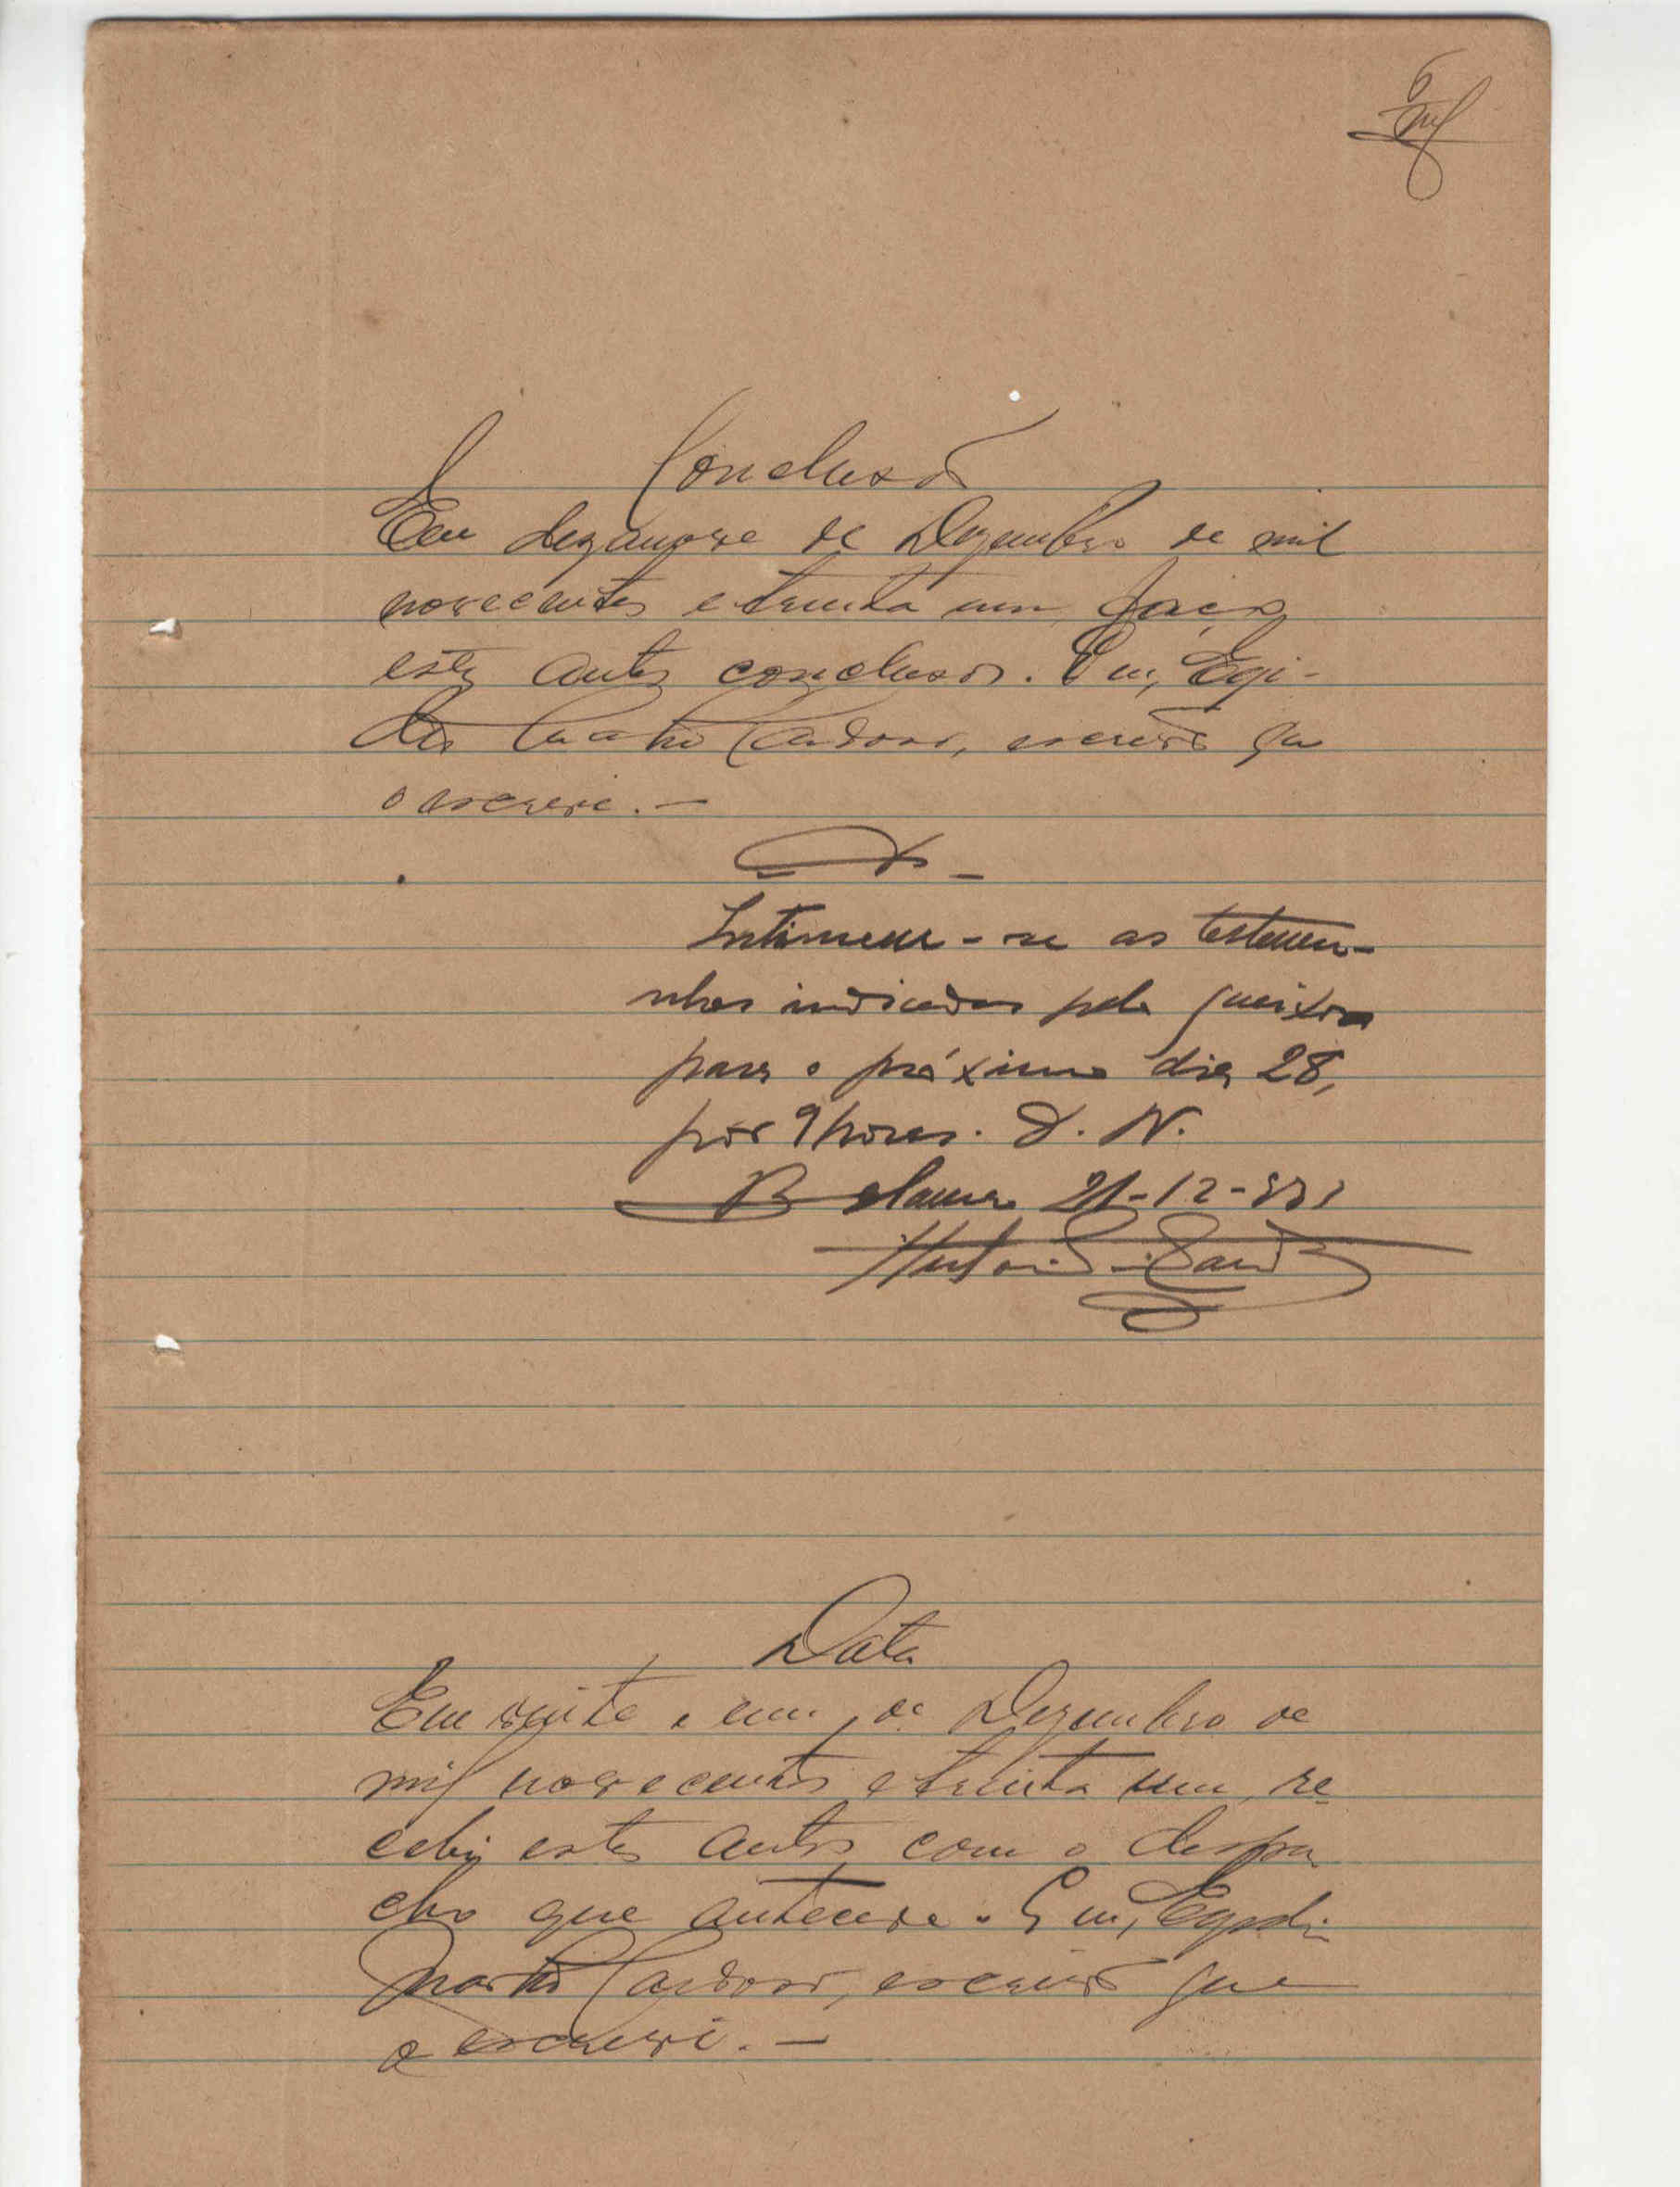 6
Conclusão
Em dezanove de Dezembro de mil
novecentos e trinta um, faço
estes autos conclusos. Eu, Egi-
dio Cardoso, escrivão que
o escrevi.—
Intimem-se as testemu-
nhas indicadas pela queixosa
para o próximo dia 28,
por 9 horas. D. N.
Bolama 21-12-931
Data
Em vinte e um de Dezembro de
mil novecentos e trinta um, re-
cebi estes autos com o despa-
cho que antecede. Eu, Egidio
Cardoso, escrivão que
o escrevi.—